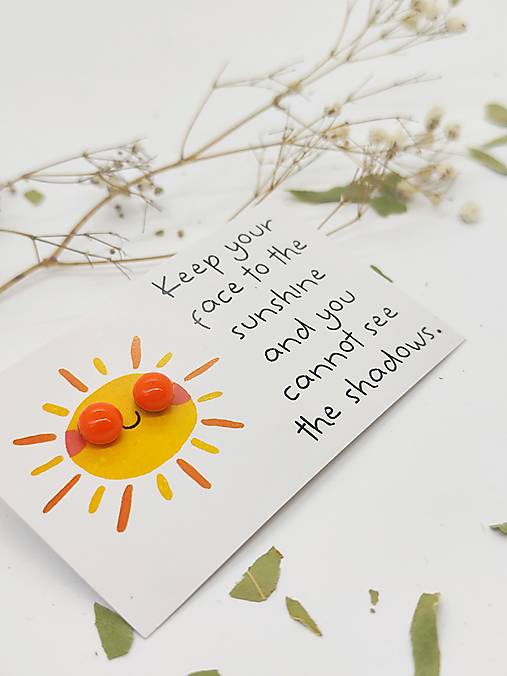 Keep your
face to the
sunshine
and you
cannot see
the shadows.